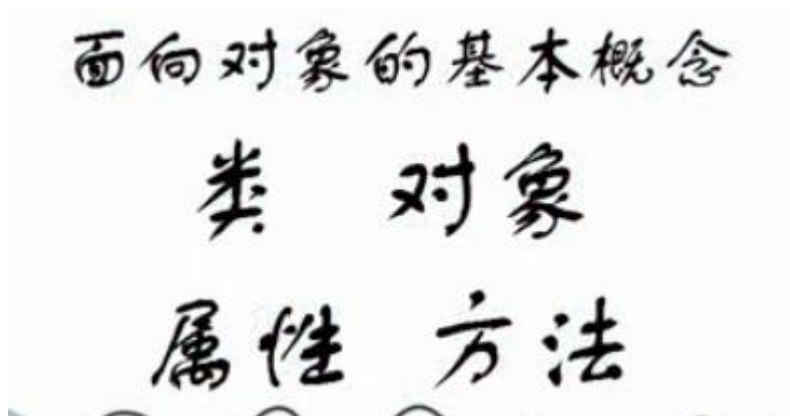 面向对象的基本概念
类 对象
属性 方法